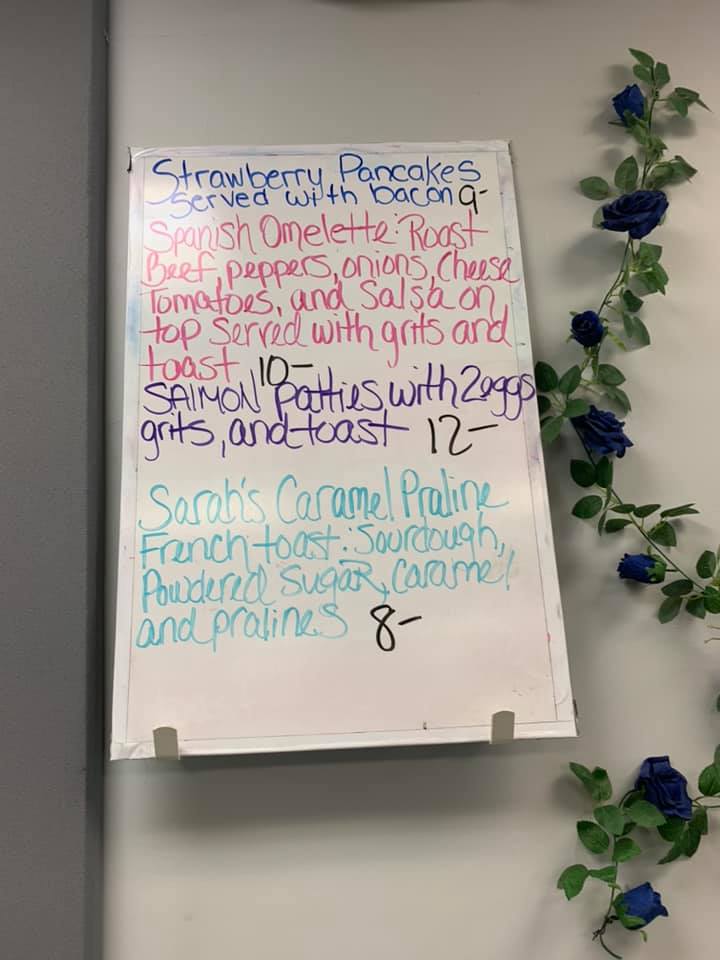 Strawberry Pancakes
Served with bacon 9-
Spanish Omelette: Roast
Beef, peppers, onions, Cheese
Tomatoes, and Salsa on
top Served with grits and
toast 10-
SAlMON patties with 2 eggs
grits, and toast 12-
Sarah's Caramel Praline
French toast: Sourdough,
Powdered Sugar, Caramel
and pralines 8-